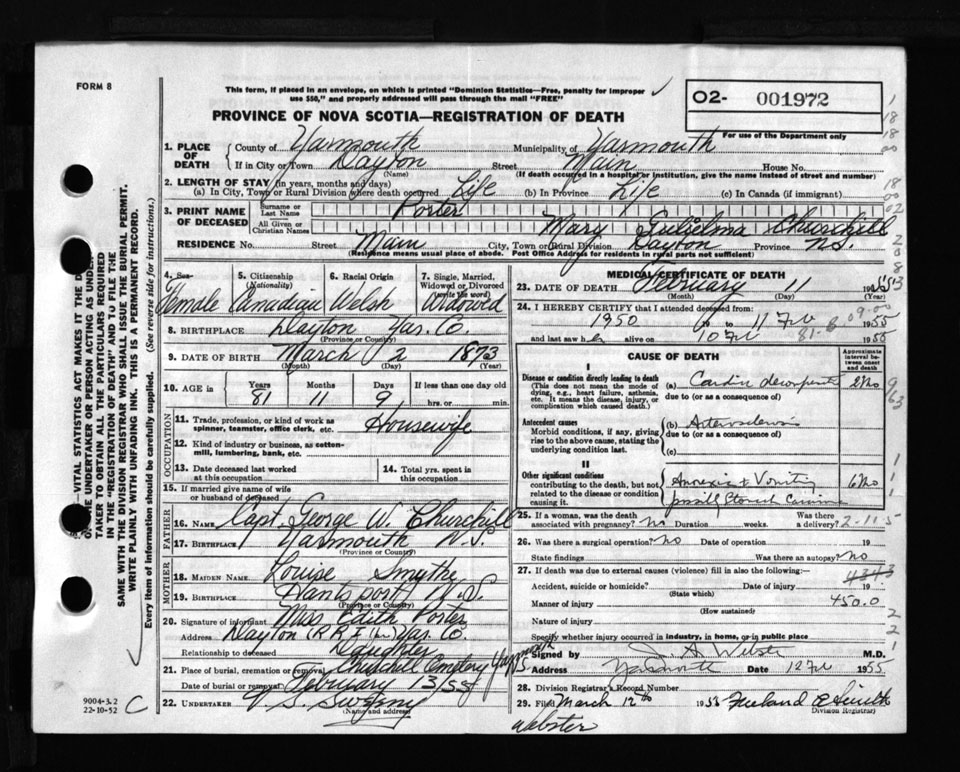 FORM 8
This form, if placed in an envelope, on which is printed "Dominion Statistics—Free, penalty for improper
use $50," and properly addressed will pass through the mail "FREE"
O2- 001972
For use of the Department only
PROVINCE OF NOVA SCOTIA—REGISTRATION OF DEATH
1. PLACE OF DEATH
County of Yarmouth Municipality of Yarmouth
If in City or Town Dayton Street Main House No.
(Name) (If death occurred in a hospital or institution, give the name instead of street and number)
2. LENGTH OF STAY (in years, months and days)
(a) In City, Town or Rural Division where death occurred Life (b) In Province Life (c) In Canada (if immigrant)
3. PRINT NAME OF DECEASED
Surname or Last Name Porter
All Given or Christian Names Mary Gulielma Churchill
RESIDENCE No. Street Main City, Town or Rural Division Dayton Province N.S.
(Residence means usual place of abode. Post Office Address for residents in rural parts not sufficient)
4. Sex Female
5. Citizenship (Nationality) Canadian
6. Racial Origin Welsh
7. Single, Married, Widowed or Divorced (write the word) Widowed
8. BIRTHPLACE Dayton Yar. Co.
(Province or Country)
9. DATE OF BIRTH March 2 1873
(Month) (Day) (Year)
10. AGE in Years Months Days If less than one day old
81 11 9 hrs. or min.
OCCUPATION
11. Trade, profession, or kind of work as spinner, teamster, office clerk, etc. Housewife
12. Kind of industry or business, as cotton-mill, lumbering, bank, etc.
13. Date deceased last worked at this occupation
14. Total yrs. spent in this occupation
15. If married give name of wife or husband of deceased
FATHER
16. NAME Capt. George W. Churchill
17. BIRTHPLACE Yarmouth N.S.
(Province or Country)
MOTHER
18. MAIDEN NAME Louise Smythe
19. BIRTHPLACE Hantsport N.S.
(Province or Country)
20. Signature of informant Miss Edith Porter
Address Dayton Yar. Co.
Relationship to deceased Daughter
21. Place of burial, cremation or removal Churchill Cemetery Yarmouth
Date of burial or removal February 13/55
22. UNDERTAKER S. Sweeny
(Name and address)
MEDICAL CERTIFICATE OF DEATH
23. DATE OF DEATH February 11 1955
(Month) (Day) (Year)
24. I HEREBY CERTIFY that I attended deceased from:
1950 19 to 11 Feb 1955
and last saw her alive on 10 Feb 1955
CAUSE OF DEATH
Approximate interval between onset and death
I
Disease or condition directly leading to death
(This does not mean the mode of dying, e.g., heart failure, asthenia, etc. It means the disease, injury, or complication which caused death.)
(a) Cardiac 2 mo
due to (or as a consequence of)
Antecedent causes
Morbid conditions, if any, giving rise to the above cause, stating the underlying condition last.
(b) Arteriosclerosis
due to (or as a consequence of)
(c)
II
Other significant conditions
contributing to the death, but not related to the disease or condition causing it.
Anorexia & Vomiting 6 mo
possibly Stomach
25. If a woman, was the death associated with pregnancy? No Duration weeks. Was there a delivery?
2-11-5
26. Was there a surgical operation? No Date of operation 19
State findings Was there an autopsy? No
27. If death was due to external causes (violence) fill in also the following:—
Accident, suicide or homicide? Date of injury 19
(State which)
4343
Manner of injury 450.0
(How sustained)
Nature of injury
Specify whether injury occurred in industry, in home, or in public place
Signed by J. A. Webster M.D.
Address Yarmouth Date 12 Feb 1955
28. Division Registrar's Record Number
29. Filed March 12th 1955 Freeland Smith
Division Registrar)
Webster
SAME WITH THE DIVISION REGISTRAR WHO SHALL ISSUE THE BURIAL PERMIT.
WRITE PLAINLY WITH UNFADING INK. THIS IS A PERMANENT RECORD.
Every item of information should be carefully supplied. (See reverse side for instructions.)
VITAL STATISTICS ACT MAKES IT THE
UNDERTAKER OR PERSON ACTING AS UNDER-
TAKER TO OBTAIN ALL THE PARTICULARS REQUIRED
IN THE "REGISTRATION OF DEATH" AND TO FILE THE
9004-3.2
22-10-52
C